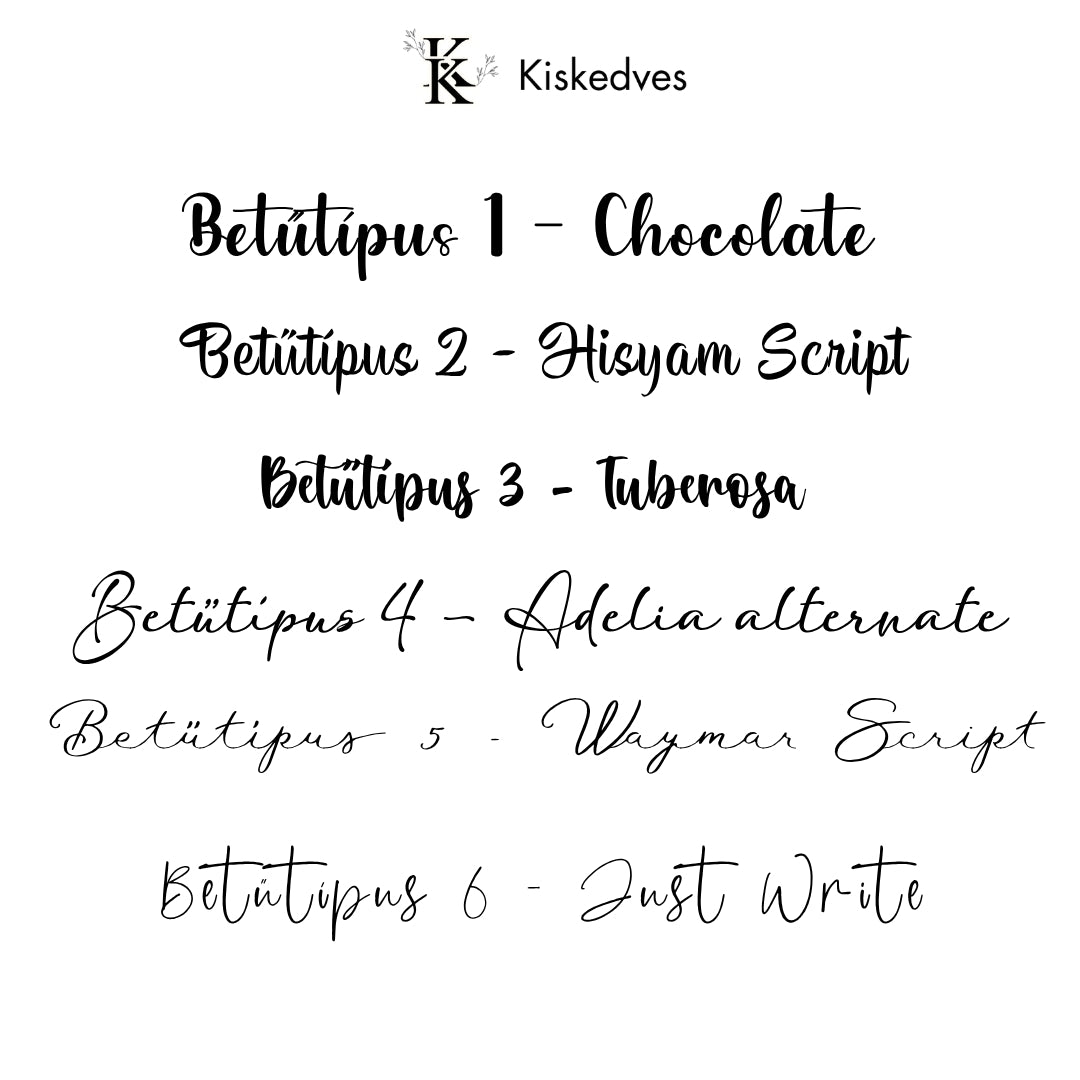 K K Kiskedves
Betűtípus 1 - Chocolate
Betűtípus 2 - Hisyam Script
Betűtípus 3 - Tuberosa
Betűtípus 4 - Adelia alternate
Betűtípus 5 - Waymar Script
Betűtípus 6 - Just Write